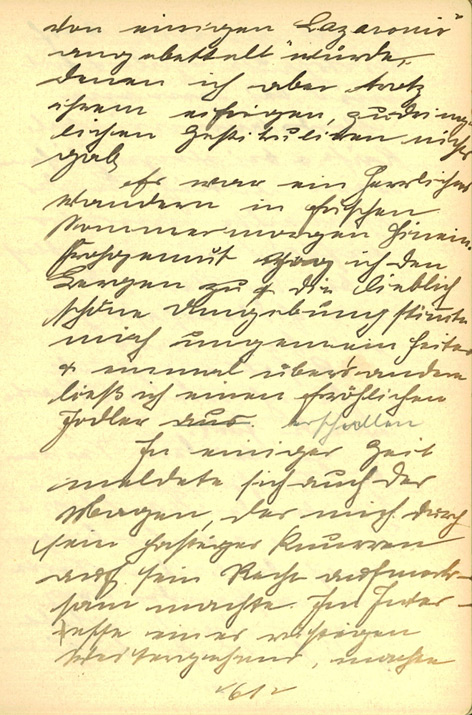 von einigen Lazaronis
angebettelt wurde,
denen ich aber trotz
ihrem eifrigen, zudring-
lichen Gestikuliren nichts
gab.
Es war ein herrliches
Wandern in frischen
Sommermorgen hinein.
Frohgemut zog ich den
Bergen zu & die lieblich
schöne Umgebung stimmte
mich ungemein heiter
& einmal übers andere
ließ ich einen fröhlichen
Jodler aus. erschallen
In einiger Zeit
meldete sich auch der
Magen, der mich durch
sein hastiges Knurren
auf sein Recht aufmerk-
sam machte. Im Inter-
esse eines richtigen
Weitergehens, machte